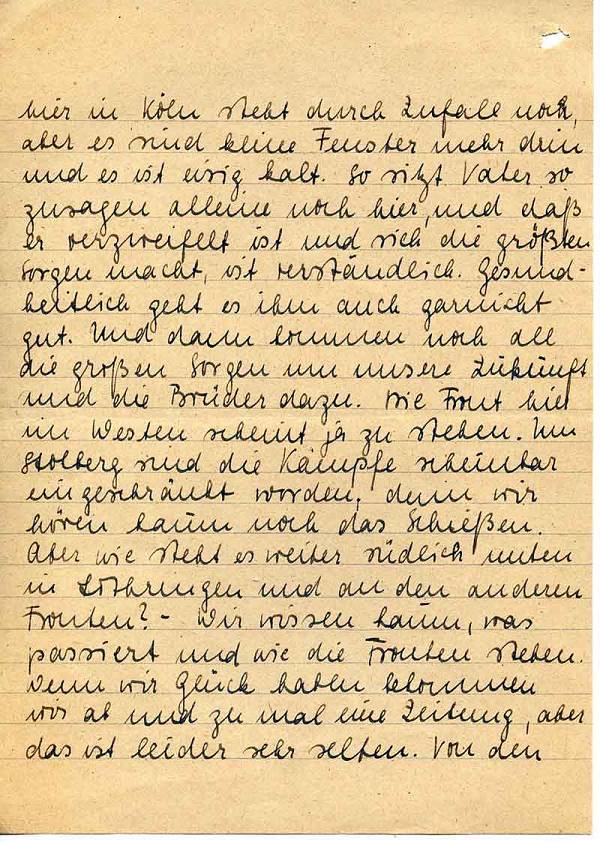 hier in Köln steht durch Zufall noch,
aber es sind keine Fenster mehr drin
und es ist eisig kalt. So sitzt Vater so
zusagen alleine noch hier, und daß
er verzweifelt ist und sich die größten
Sorgen macht, ist verständlich. Gesund-
heitlich geht es ihm auch garnicht
gut. Und dann kommen noch all
die großen Sorgen um unsere Zukunft
und die Brüder dazu. Die Front hier
im Westen scheint ja zu stehen. Um
Stolberg sind die Kämpfe scheinbar
eingeschränkt worden, denn wir
hören kaum noch das Schießen.
Aber wie steht es weiter südlich unten
in Lothringen und an den anderen
Fronten? - Wir wissen kaum, was
passiert und wie die Fronten stehen.
Wenn wir Glück haben bekommen
wir ab und zu mal eine Zeitung, aber
das ist leider sehr selten. Von den